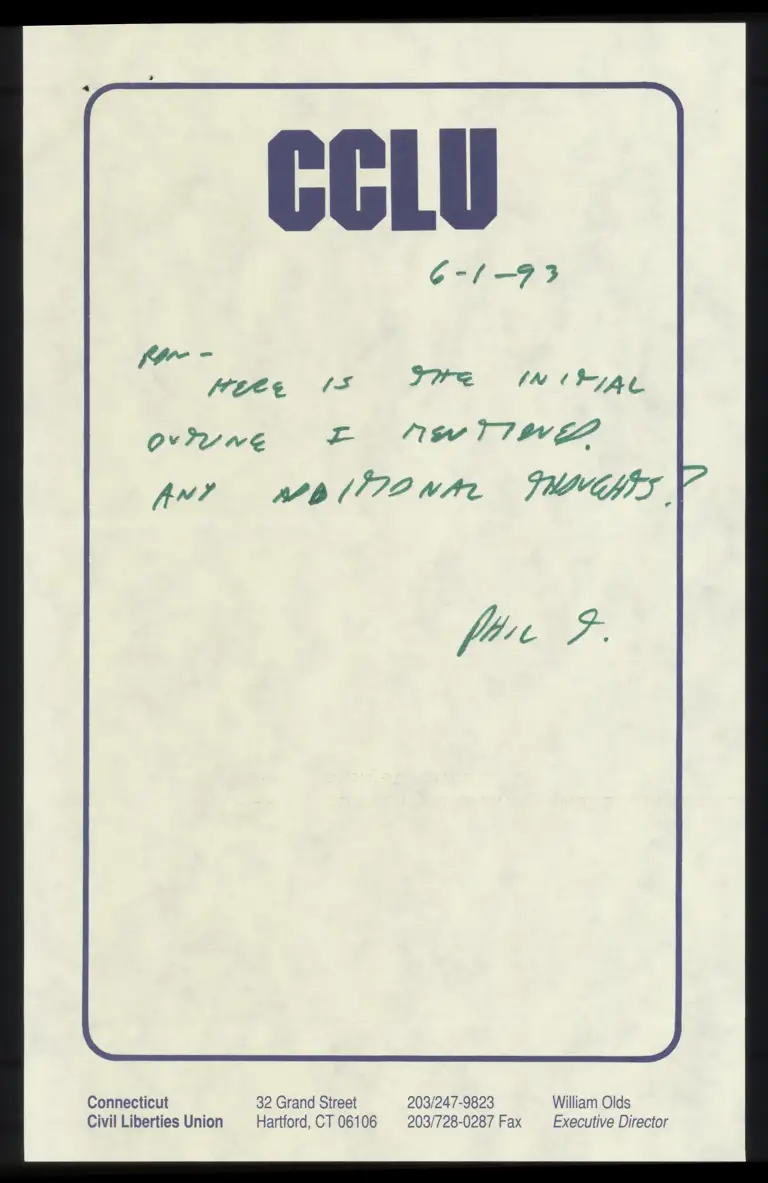 CCLU
6-1-93
RON -
HERE IS THE INITIAL
OUTLINE I MENTIONED.
ANY ADDITIONAL THOUGHTS?
PHIL T.
Connecticut
Civil Liberties Union
32 Grand Street
Hartford, CT 06106
203/247-9823
203/728-0287 Fax
William Olds
Executive Director